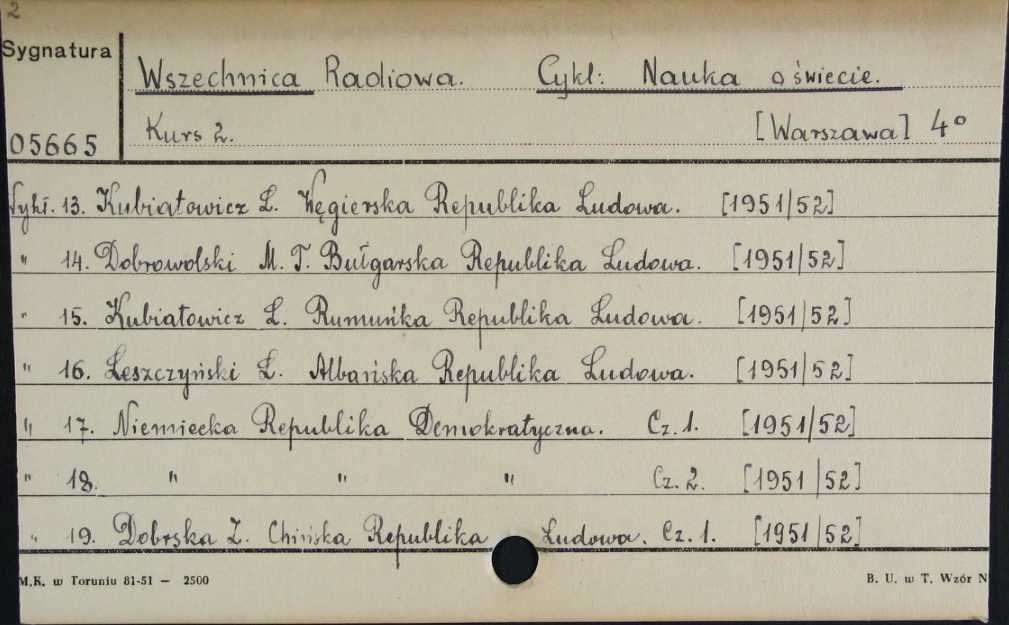 2
Sygnatura
Wszechnica Radiowa. Cykl: Nauka o świecie.
05665
Kurs 2. [Warszawa] 4°
Wykł. 13. Kubiatowicz L. Węgierska Republika Ludowa. [1951/52]
" 14. Dobrowolski M. T. Bułgarska Republika Ludowa. [1951/52]
" 15. Kubiatowicz L. Rumuńka Republika Ludowa. [1951/52]
" 16. Leszczyński L. Albańska Republika Ludowa. [1951/52]
" 17. Niemiecka Republika Demokratyczna. Cz. 1. [1951/52]
" 18. " " " Cz. 2. [1951/52]
" 19. Dobrska Z. Chińska Republika Ludowa. Cz. 1. [1951/52]
M.K. w Toruniu 81-51 — 2500
B. U. w T. Wzór N